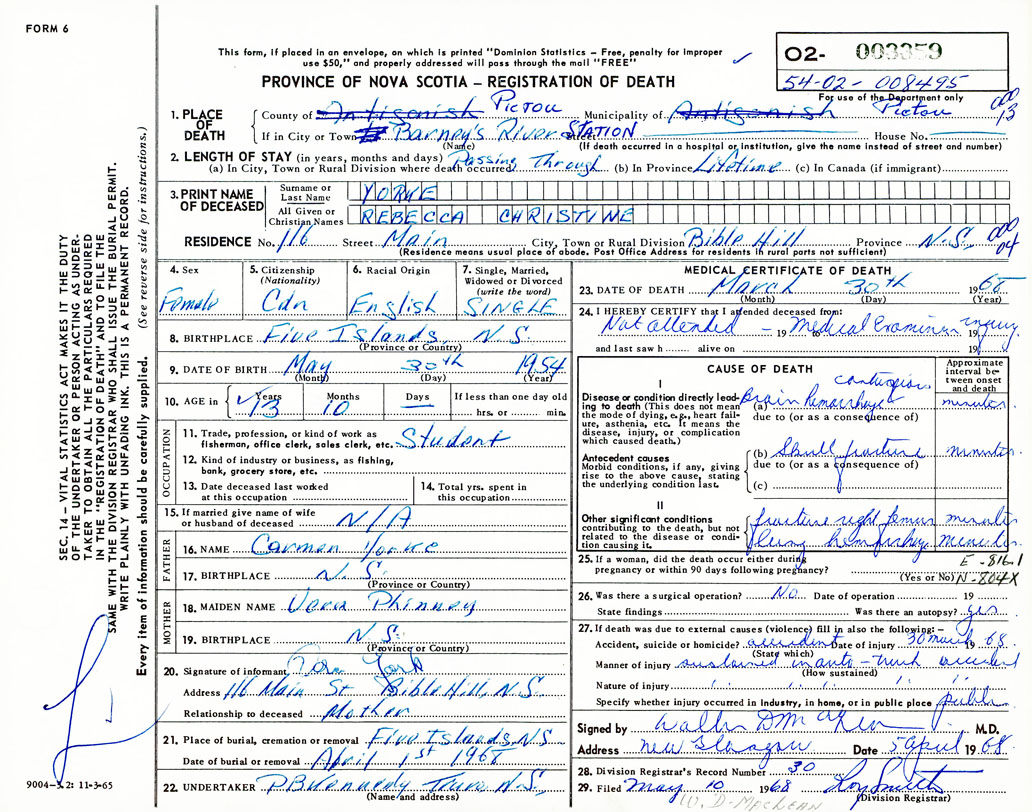 FORM 6
This form, if placed in an envelope, on which is printed "Dominion Statistics – Free, penalty for improper
use $50," and properly addressed will pass through the mail "FREE"
PROVINCE OF NOVA SCOTIA – REGISTRATION OF DEATH
O2- 003359
54-02-008495
For use of the Department only
1. PLACE OF DEATH
County of Antigonish Pictou Municipality of Antigonish Pictou 000 13
If in City or Town Barney's River STATION Street House No.
(Name) (If death occurred in a hospital or institution, give the name instead of street and number)
2. LENGTH OF STAY (in years, months and days)
(a) In City, Town or Rural Division where death occurred Passing Through (b) In Province Lifetime (c) In Canada (if immigrant)
3. PRINT NAME OF DECEASED
Surname or Last Name YORKE
All Given or Christian Names REBECCA CHRISTINE
RESIDENCE No. 116 Street Main City, Town or Rural Division Bible Hill Province N.S. 000 04
(Residence means usual place of abode. Post Office Address for residents in rural parts not sufficient)
4. Sex
Female
5. Citizenship (Nationality)
Cdn
6. Racial Origin
English
7. Single, Married, Widowed or Divorced (write the word)
SINGLE
8. BIRTHPLACE Five Islands, N.S.
(Province or Country)
9. DATE OF BIRTH May 30th 1954
(Month) (Day) (Year)
10. AGE in Years 13 Months 10 Days If less than one day old hrs. or min.
OCCUPATION
11. Trade, profession, or kind of work as fisherman, office clerk, sales clerk, etc. Student
12. Kind of industry or business, as fishing, bank, grocery store, etc.
13. Date deceased last worked at this occupation
14. Total yrs. spent in this occupation
15. If married give name of wife or husband of deceased N/A
FATHER
16. NAME Carman Yorke
17. BIRTHPLACE N.S.
(Province or Country)
MOTHER
18. MAIDEN NAME Vera Phinney
19. BIRTHPLACE N.S.
(Province or Country)
20. Signature of informant York
Address 116 Main St Bible Hill, N.S.
Relationship to deceased Mother
21. Place of burial, cremation or removal Five Islands N.S.
Date of burial or removal April 1st 1968
22. UNDERTAKER P B Kennedy Truro N.S.
(Name and address)
MEDICAL CERTIFICATE OF DEATH
23. DATE OF DEATH March 30th 1968
(Month) (Day) (Year)
24. I HEREBY CERTIFY that I attended deceased from:
Not attended – 19 Medical Examiner inquiry
and last saw h alive on 19
CAUSE OF DEATH
Approximate interval between onset and death
I
Disease or condition directly leading to death (This does not mean the mode of dying, e.g., heart failure, asthenia, etc. It means the disease, injury, or complication which caused death.)
(a) Brain hemorrhage minutes
due to (or as a consequence of)
Antecedent causes
Morbid conditions, if any, giving rise to the above cause, stating the underlying condition last.
(b) Skull fracture minutes
due to (or as a consequence of)
(c)
II
Other significant conditions contributing to the death, but not related to the disease or condition causing it.
fracture right femur minutes
minutes
25. If a woman, did the death occur either during pregnancy or within 90 days following pregnancy? E-816.1
(Yes or No) N-804X
26. Was there a surgical operation? No Date of operation 19
State findings Was there an autopsy? yes
27. If death was due to external causes (violence) fill in also the following:–
Accident, suicide or homicide? accident Date of injury 30 March 1968
(State which)
Manner of injury sustained in auto – truck accident
(How sustained)
Nature of injury " " " " "
Specify whether injury occurred in Industry, in home, or in public place public
Signed by M.D.
Address New Glasgow Date 5 April 1968
28. Division Registrar's Record Number 30
29. Filed May 10 1968 Roy Smith
(Division Registrar)
W. D. MacLean
SEC. 14 – VITAL STATISTICS ACT MAKES IT THE DUTY
OF THE UNDERTAKER OR PERSON ACTING AS UNDER-
TAKER TO OBTAIN ALL THE PARTICULARS REQUIRED
IN THE "REGISTRATION OF DEATH" AND TO FILE THE
SAME WITH THE DIVISION REGISTRAR WHO SHALL ISSUE BURIAL PERMIT.
WRITE PLAINLY WITH UNFADING INK. THIS IS A PERMANENT RECORD.
Every item of information should be carefully supplied. (See reverse side for instructions.)
9004-5.2: 11-3-65